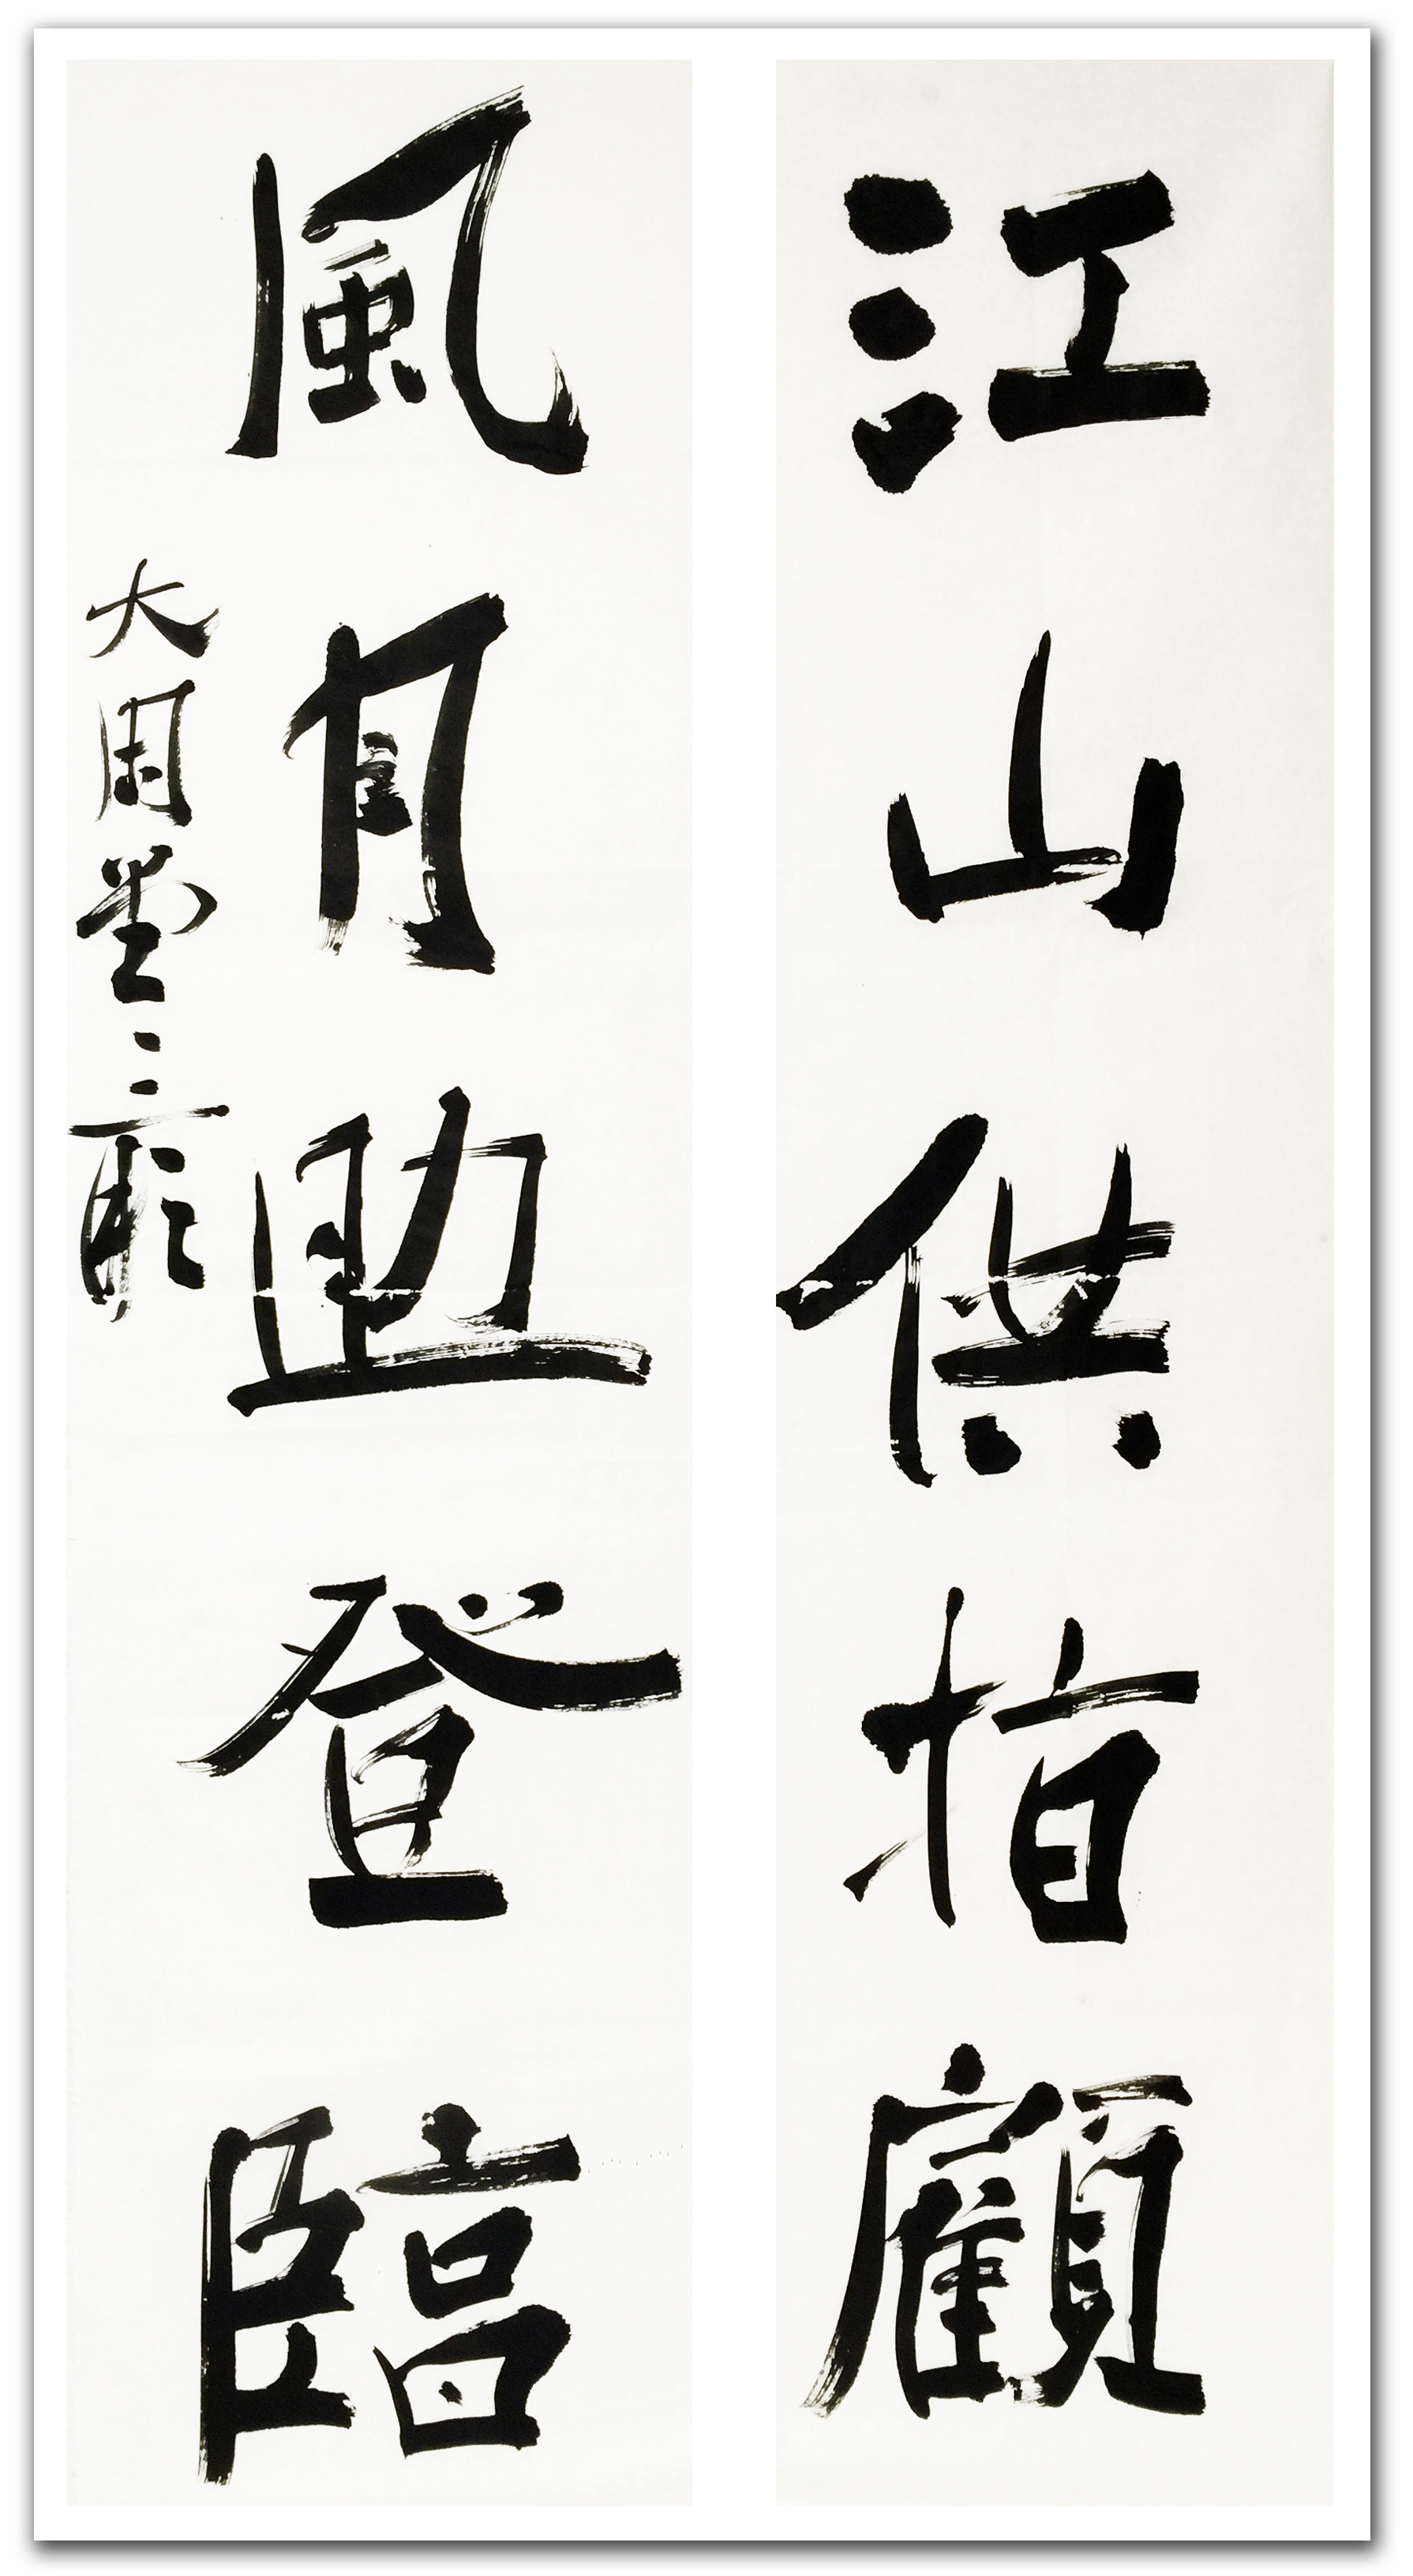 江山供指顧
風月助登臨
大周堂三